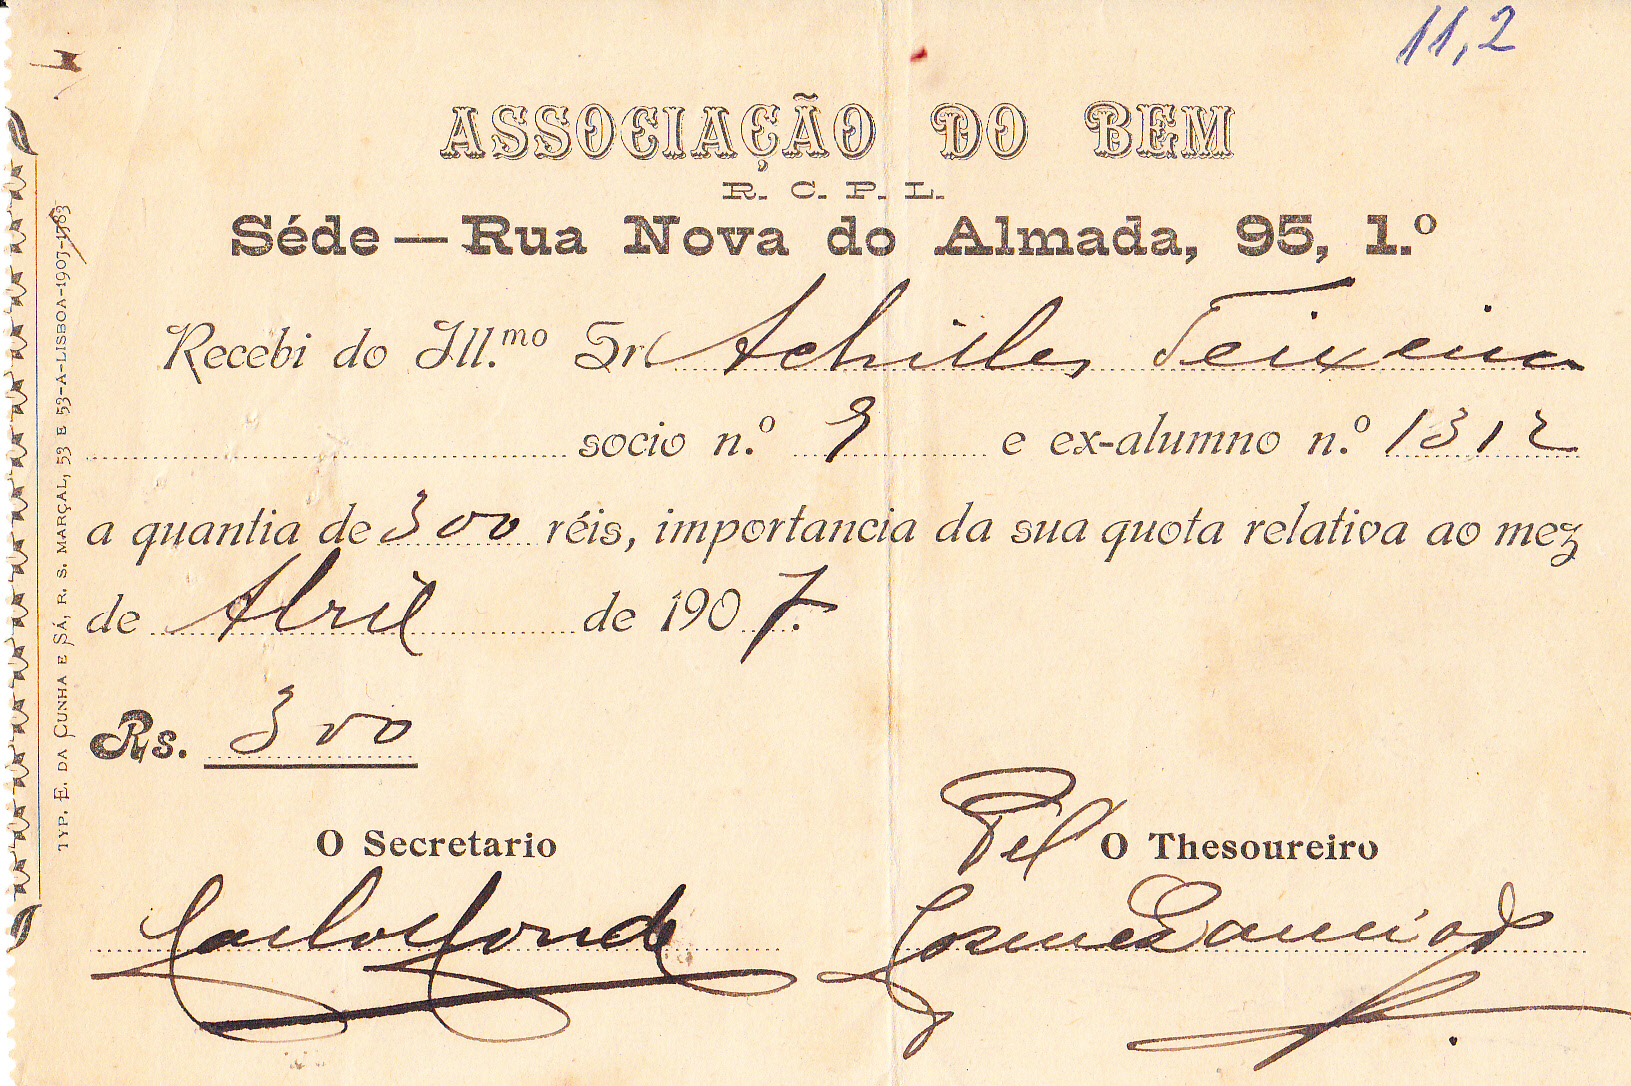 11,2
ASSOCIAÇÃO DO BEM
R. C. P. L.
Séde — Rua Nova do Almada, 95, 1.º
Recebi do Ill.mo Sr Achilles Teixeira
socio n.º 9 e ex-alumno n.º 1312
a quantia de 300 réis, importancia da sua quota relativa ao mez
de Abril de 1907.
Rs. 300
O Secretario
Pel O Thesoureiro
Carlos Conde
TYP. E. DA CUNHA E SÁ, R. S. MARÇAL, 53 E 53-A-LISBOA-1907-1983